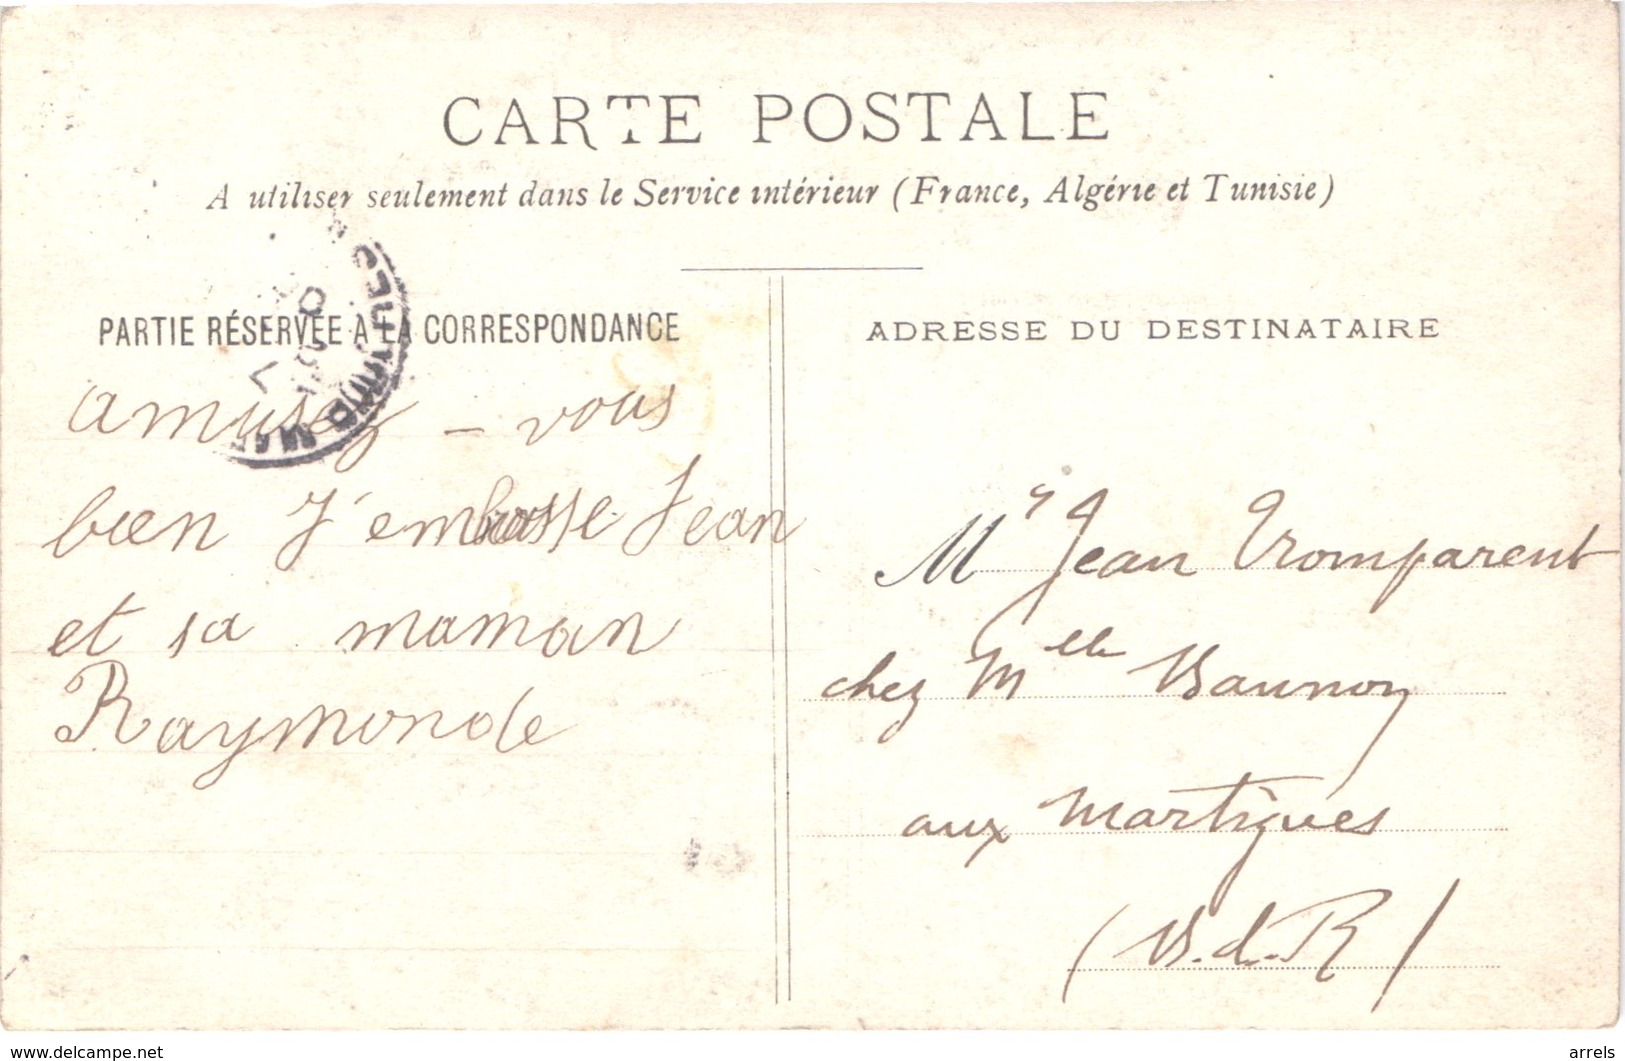 CARTE POSTALE
A utiliser seulement dans le Service intérieur (France, Algérie et Tunisie)
PARTIE RÉSERVÉE A LA CORRESPONDANCE
amusez - vous
bien J'embrasse Jean
et sa maman
Raymonde
ADRESSE DU DESTINATAIRE
Mr Jean Tromparent
chez Melle Baunoy
aux Martigues
(B.d.R)
https://www.delcampe.net
arrels